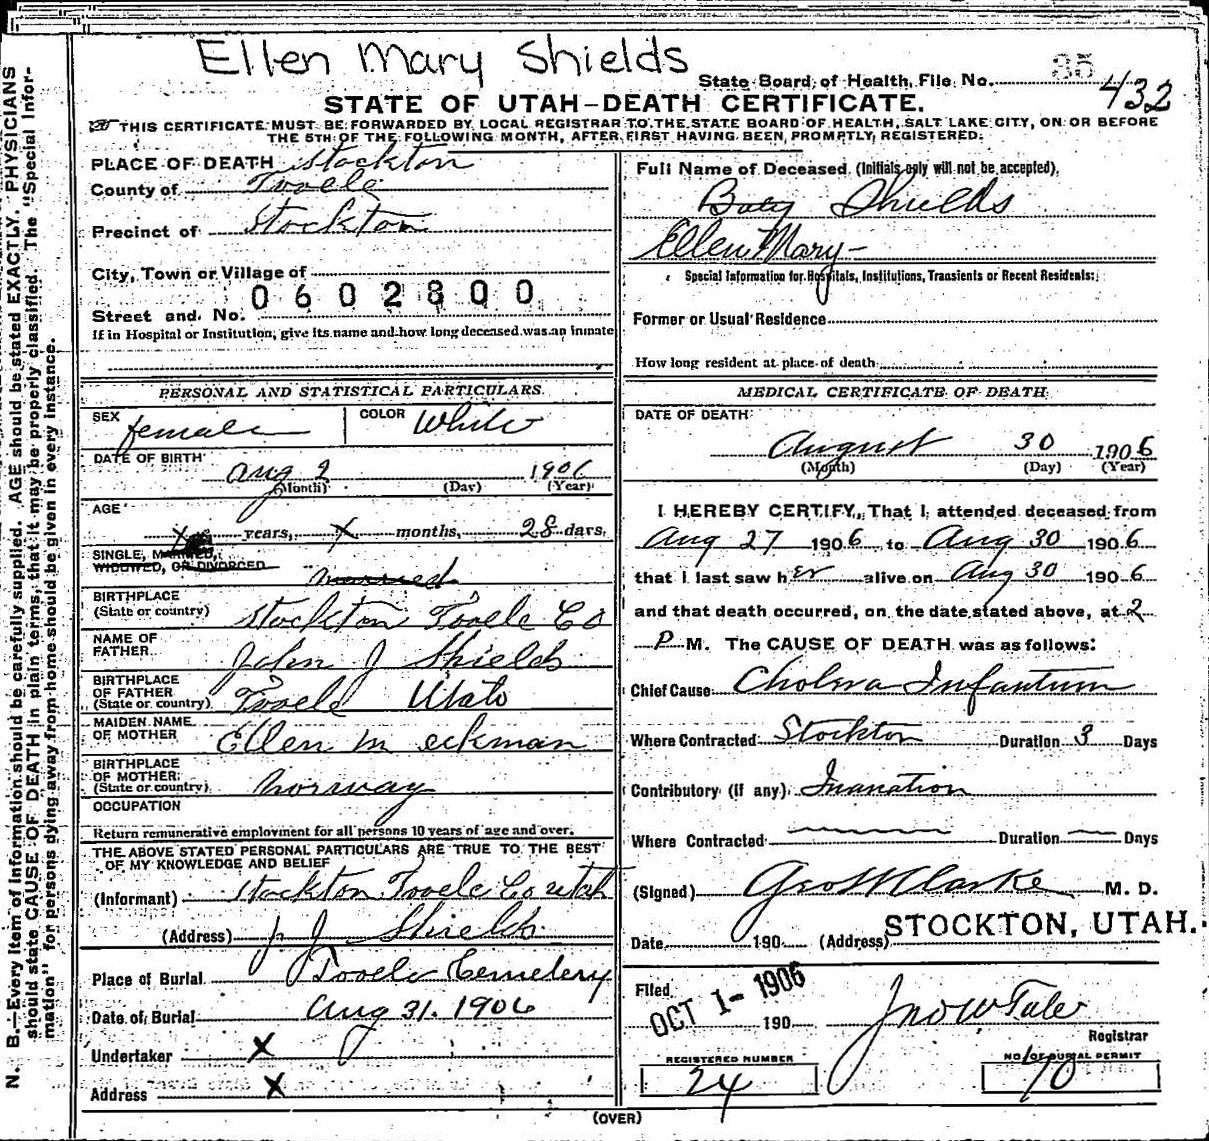 Ellen Mary Shields
State Board of Health, File No. 35 432
STATE OF UTAH—DEATH CERTIFICATE.
THIS CERTIFICATE MUST BE FORWARDED BY LOCAL REGISTRAR TO THE STATE BOARD OF HEALTH, SALT LAKE CITY, ON OR BEFORE
THE 5TH OF THE FOLLOWING MONTH, AFTER FIRST HAVING BEEN PROMPTLY REGISTERED.
PLACE OF DEATH Stockton
County of Tooele
Precinct of Stockton
City, Town or Village of
0602800
Street and No.
If in Hospital or Institution, give its name and how long deceased was an inmate
PERSONAL AND STATISTICAL PARTICULARS.
SEX female COLOR White
DATE OF BIRTH Aug 2 1906
(Month) (Day) (Year)
AGE
X years, X months, 28 days.
SINGLE, MARRIED,
WIDOWED, OR DIVORCED married
BIRTHPLACE
(State or country) Stockton Tooele Co
NAME OF
FATHER John J Shields
BIRTHPLACE
OF FATHER
(State or country) Tooele Utah
MAIDEN NAME
OF MOTHER Ellen M eckman
BIRTHPLACE
OF MOTHER
(State or country) Norway
OCCUPATION
Return remunerative employment for all persons 10 years of age and over.
THE ABOVE STATED PERSONAL PARTICULARS ARE TRUE TO THE BEST
OF MY KNOWLEDGE AND BELIEF
(Informant) Stockton Tooele Co utah
(Address) J J Shields
Place of Burial Tooele Cemetery
Date of Burial Aug 31. 1906
Undertaker X
Address X
Full Name of Deceased (Initials only will not be accepted).
Baby Shields
Ellen Mary -
Special Information for Hospitals, Institutions, Transients or Recent Residents:
Former or Usual Residence
How long resident at place of death
MEDICAL CERTIFICATE OF DEATH
DATE OF DEATH
August 30 1906
(Month) (Day) (Year)
I HEREBY CERTIFY, That I attended deceased from
Aug 27 1906, to Aug 30 1906
that I last saw her alive on Aug 30 1906
and that death occurred, on the date stated above, at 2
P M. The CAUSE OF DEATH was as follows:
Chief Cause Cholera Infantum
Where Contracted Stockton Duration 3 Days
Contributory (if any) Inanation
Where Contracted Duration Days
(Signed) Geo W Clarke M. D.
Date 190 (Address) STOCKTON, UTAH.
Filed OCT 1- 1906
190
Registrar
REGISTERED NUMBER
24
NO. OF BURIAL PERMIT
70
(OVER)
N. B.—Every item of information should be carefully supplied. AGE should be stated EXACTLY. PHYSICIANS
should state CAUSE OF DEATH in plain terms, that it may be properly classified. The "Special Infor-
mation" for persons dying away from home should be given in every instance.